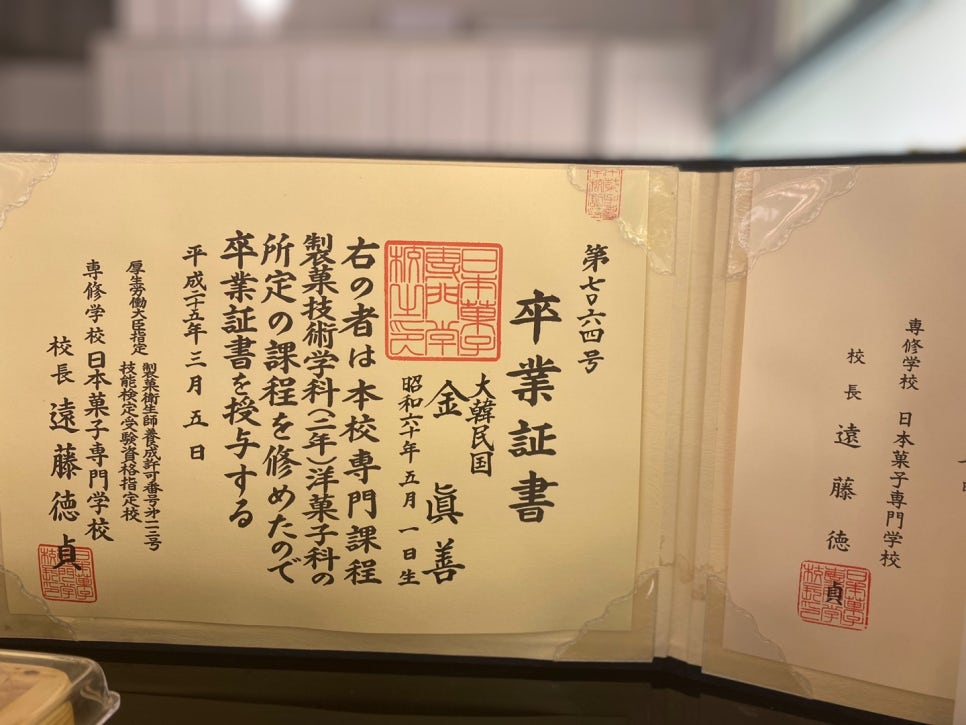 第七〇六四号
卒業証書
大韓民国
金眞善
昭和六十年五月一日生
右の者は本校専門課程
製菓技術学科(二年)洋菓子科の
所定の課程を修めたので
卒業証書を授与する
平成二十五年三月五日
厚生労働大臣指定
製菓衛生師養成許可番号第一二号
技能検定受験資格指定校
専修学校日本菓子専門学校
校長遠藤徳貞
日本菓子専門学校之印
専修学校 日本菓子専門学校
校長 遠藤徳貞